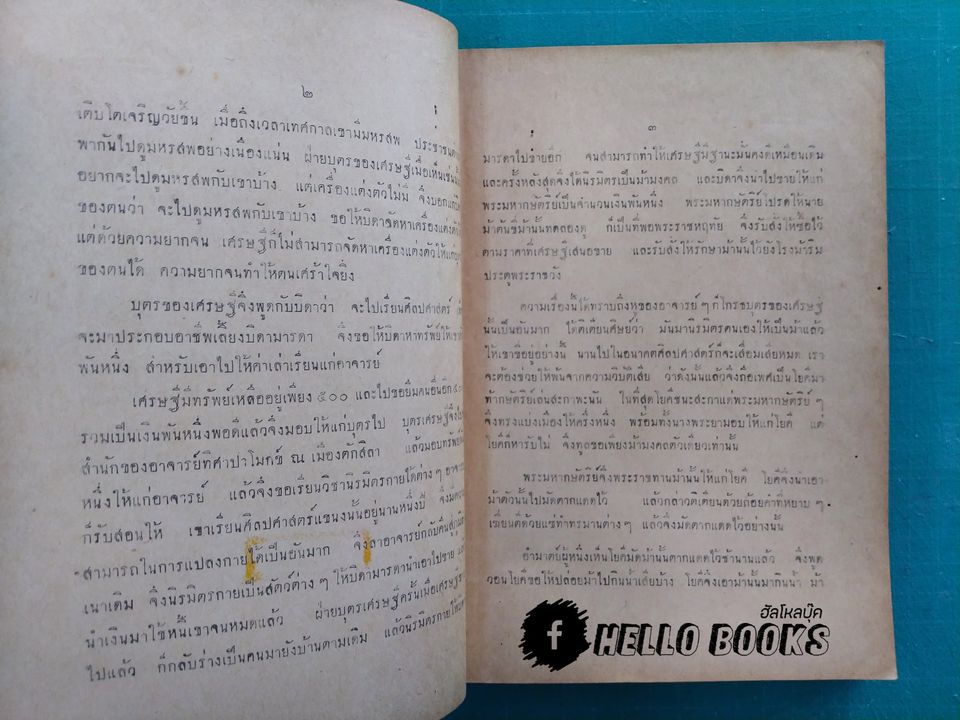 ๒
เติบโตเจริญวัยขึ้น เมื่อถึงเวลาเทศกาลเขามีมหรสพ
พากันไปดูมหรสพอย่างเนืองแน่น ฝ่ายบุตรของเศรษฐีเมื่อเห็น
อยากจะไปดูมหรสพกับเขาบ้าง แต่เครื่องแต่งตัวไม่มี
ของตนว่า จะไปดูมหรสพกับเขาบ้าง ขอให้บิดาจัดหาเครื่องแต่งตัว
แต่ด้วยความยากจน เศรษฐีก็ไม่สามารถจัดหาเครื่องแต่งตัวให้
ของตนได้ ความยากจนทำให้ตนเศร้าใจยิ่ง
บุตรของเศรษฐีจึงพูดกับบิดาว่า จะไปเรียนศิลปศาสตร์
จะมาประกอบอาชีพเลี้ยงบิดามารดา จึงขอให้บิดาหาทรัพย์ให้
พันหนึ่ง สำหรับเอาไปให้ค่าเล่าเรียนแก่อาจารย์
เศรษฐีมีทรัพย์เหลืออยู่เพียง ๕๐๐ และไปขอยืมคนอื่นอีก
รวมเป็นเงินพันหนึ่งพอดีแล้วจึงมอบให้แก่บุตรไป บุตรเศรษฐีจึง
สำนักของอาจารย์ทิศาปาโมกข์ ณ เมืองตักสิลา แล้วมอบทรัพย์
หนึ่งให้แก่อาจารย์ แล้วจึงขอเรียนวิชานิรมิตรกายได้ต่างๆ
ก็รับสอนให้ เขาเรียนศิลปศาสตร์แขนงนั้นอยู่นานหนึ่งปี
สามารถในการแปลงกายได้เป็นยันมาก จึงลาอาจารย์กลับคืนสู่
เนาเดิม จึงนิรมิตรกายเป็นสัตว์ต่างๆ ให้บิดามารดานำเอาไปขาย
นำเงินมาใช้หนี้เขาจนหมดแล้ว ฝ่ายบุตรเศรษฐีครั้นเมื่อ
ไปแล้ว ก็กลับร่างเป็นคนมายังบ้านตามเดิม แล้วนิรมิตรกาย
๓
มารดาไปขายอีก จนสามารถทำให้เศรษฐีมีฐานะมั่นคงดีเหมือนเดิม
และครั้งหลังสุดจึงได้นิรมิตรเป็นม้ามงคล และบิดาจึงนำไปขายให้แก่
พระมหากษัตริย์เป็นจำนวนเงินพันหนึ่ง พระมหากษัตริย์โปรดให้นาย
ม้าต้นขี่ม้านั้นทดลองดู ก็เป็นที่พอพระราชหฤทัย จึงรับสั่งให้ซื้อไว้
ตามราคาที่เศรษฐีเสนอขาย และรับสั่งให้รักษาม้านั้นไว้ยังโรงม้าริม
ประตูพระราชวัง
ความเรื่องนี้ได้ทราบถึงหูของอาจารย์ ๆ ก็โกรธบุตรของเศรษฐี
นั้นเป็นอันมาก ได้ติเตียนศิษย์ว่า มันมานิรมิตรตนเองให้เป็นม้าแล้ว
ให้เขาขี่อยู่อย่างนี้ นานไปในอนาคตศิลปศาสตร์ก็จะเสื่อมเสียหมด เรา
จะต้องช่วยให้พ้นจากความวิบัติเสีย ว่าดังนั้นแล้วจึงถือเพศเป็นโยคีมา
ท้ากษัตริย์เล่นสะกาพะนัน ในที่สุดโยคีชนะสะกาแด่พระมหากษัตริย์ ๆ
จึงทรงแบ่งเมืองให้ครึ่งหนึ่ง พร้อมทั้งนางพระยามอบให้แก่โยคี แต่
โยคีก็หารับไม่ จึงทูลขอเพียงม้ามงคลตัวเดียวเท่านั้น
พระมหากษัตริย์จึงพระราชทานม้านั้นให้แก่โยคี โยคีจึงนำเอา
ม้าตัวนั้นไปมัดตากแดดไว้ แล้วกล่าวติเตียนด้วยถ้อยคำที่หยาบ ๆ
เฆี่ยนตีด้วยแซ่ทำทรมานต่าง ๆ แล้วจึงมัดตากแดดไว้อย่างนั้น
อำมาตย์ผู้หนึ่งเห็นโยคีมัดม้านั้นตากแดดไว้ช้านานแล้ว จึงพูด
วอนโยคีขอให้ปล่อยม้าไปกินน้ำเสียบ้าง โยคีจึงเอาม้านั้นมากินน้ำ ม้า
ฮัลโหลบุ๊ค
f HELLO BOOKS